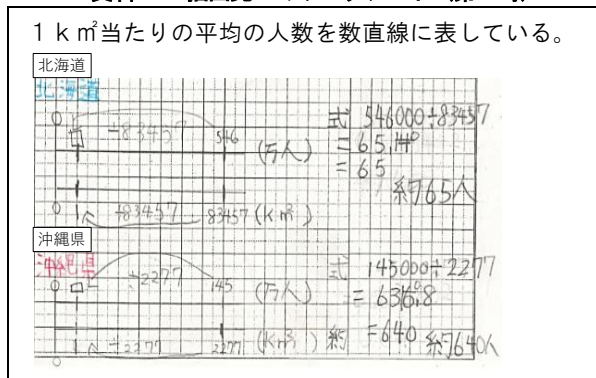 1ｋ㎡当たりの平均の人数を数直線に表している。
北海道
北海道
0 ÷83457 546 (万人)
0 1 ÷83457 83457 (km²)
式 546000÷83457
= 65.
= 65
約65人
沖縄県
沖縄県
0 ÷2277 145 (万人)
0 1 ÷2277 2277 (km²)
式 145000÷2277
= 636.8
約 =640 約640人